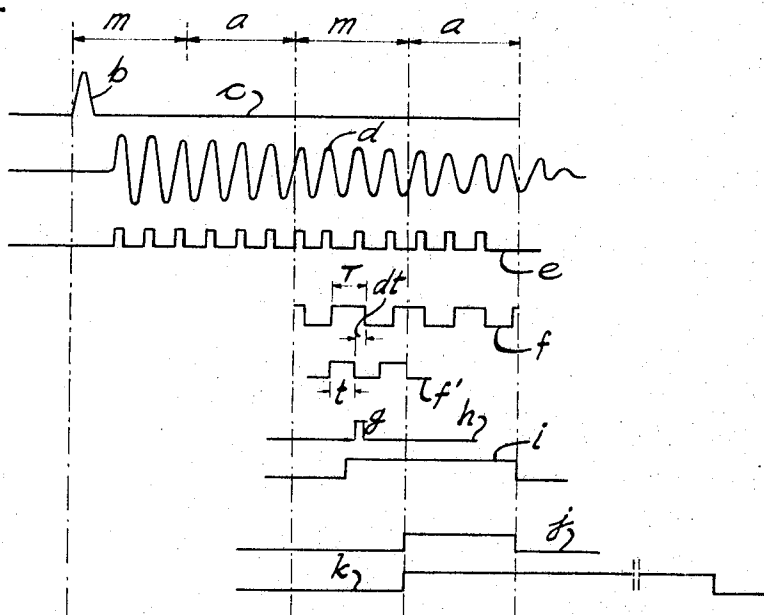 m a m a
b
c
d
e
T
dt
f
t
f'
g
h
i
j
k